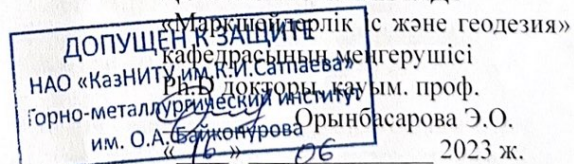 «Маркшейдерлік іс және геодезия»
кафедрасының меңгерушісі
Ph.D докторы, қауым. проф.
Орынбасарова Э.О.
«16» 06 2023 ж.
ДОПУЩЕН К ЗАЩИТЕ
НАО «КазНИТУ им.К.И.Сатпаева»
Горно-металлургический институт
им. О.А.Байконурова